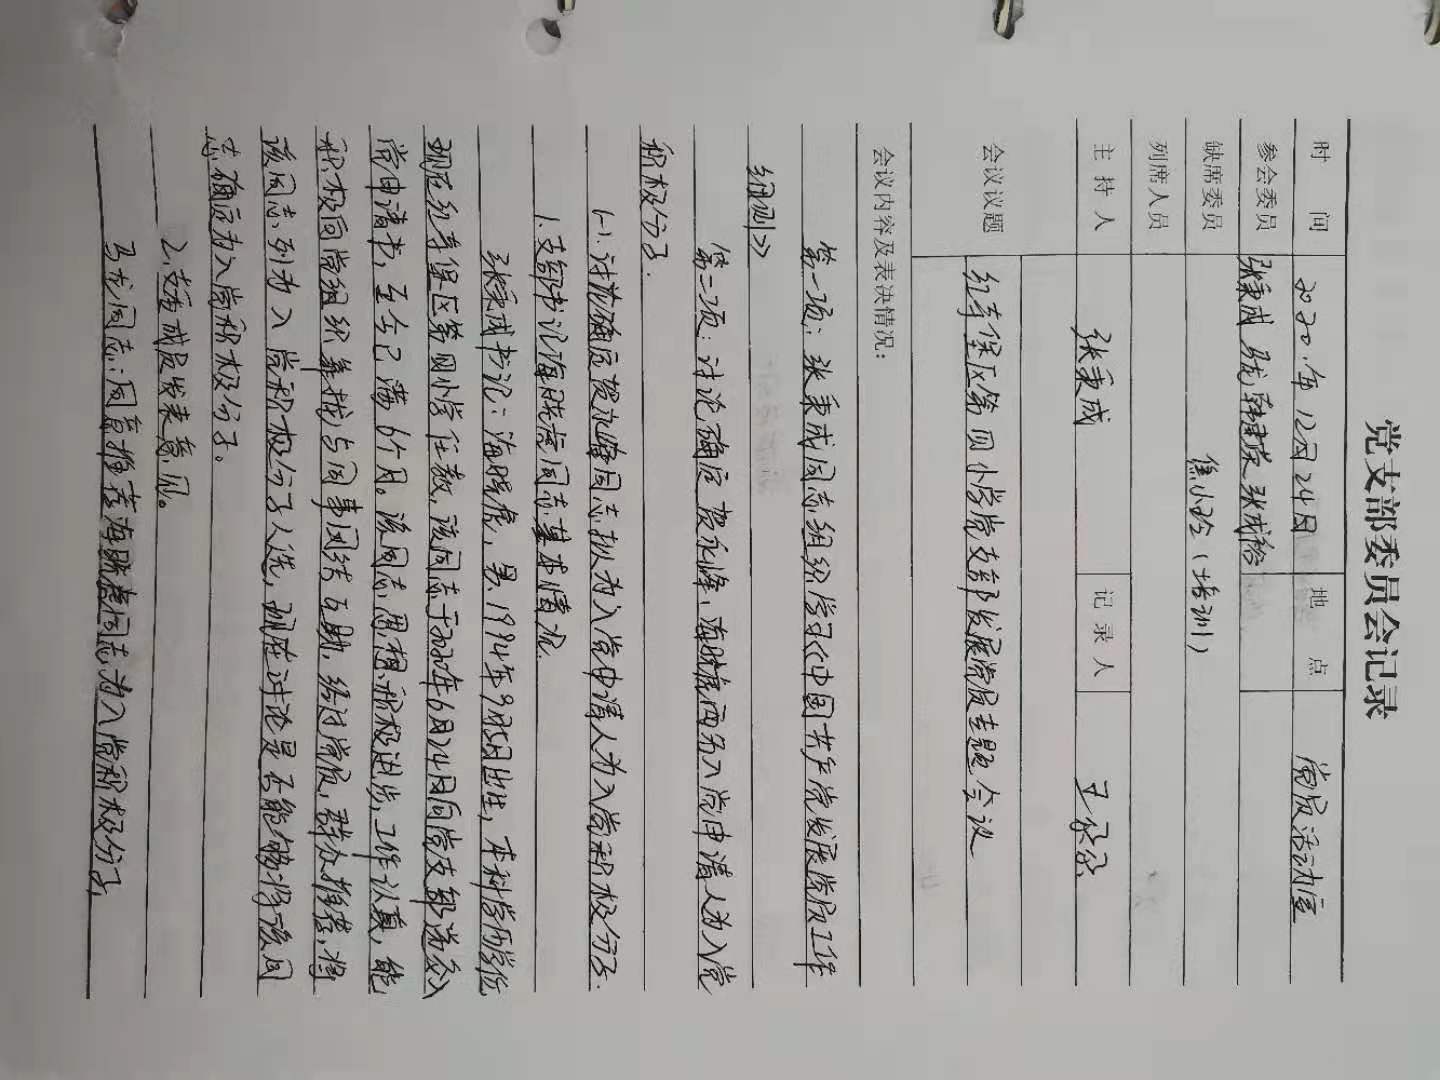 党支部委员会记录
时间 2020年12月24日 地点 党员活动室
参会委员 张秉成 马龙 张成裕
缺席委员 焦小玲(培训)
列席人员
主持人 张秉成 记录人
会议议题 红寺堡区第四小学党支部发展党员专题会议
会议内容及表决情况:
第一项:张秉成同志组织学习《中国共产党发展党员工作
细则》
第二项:讨论确定贺永峰、海晓虎两名入党申请人为入党
积极分子.
(一).讨论确定贺永峰同志拟为入党申请人为入党积极分子.
1.支部书记海晓虎同志基本情况.
张秉成书记:海晓虎,男,1994年9月5日出生,本科学历学位
现在红寺堡区第四小学任教,该同志于2020年6月24日向党支部递交入
党申请书,至今已满6个月。该同志思想积极进步,工作认真,能
积极向党组织靠拢与同事团结互助,经过党员、群众推荐,将
该同志列为入党积极分子人选,现在讨论是否能够将该同
志确定为入党积极分子。
2.支委成员发表意见。
马龙同志:同意推荐海晓虎同志为入党积极分子,